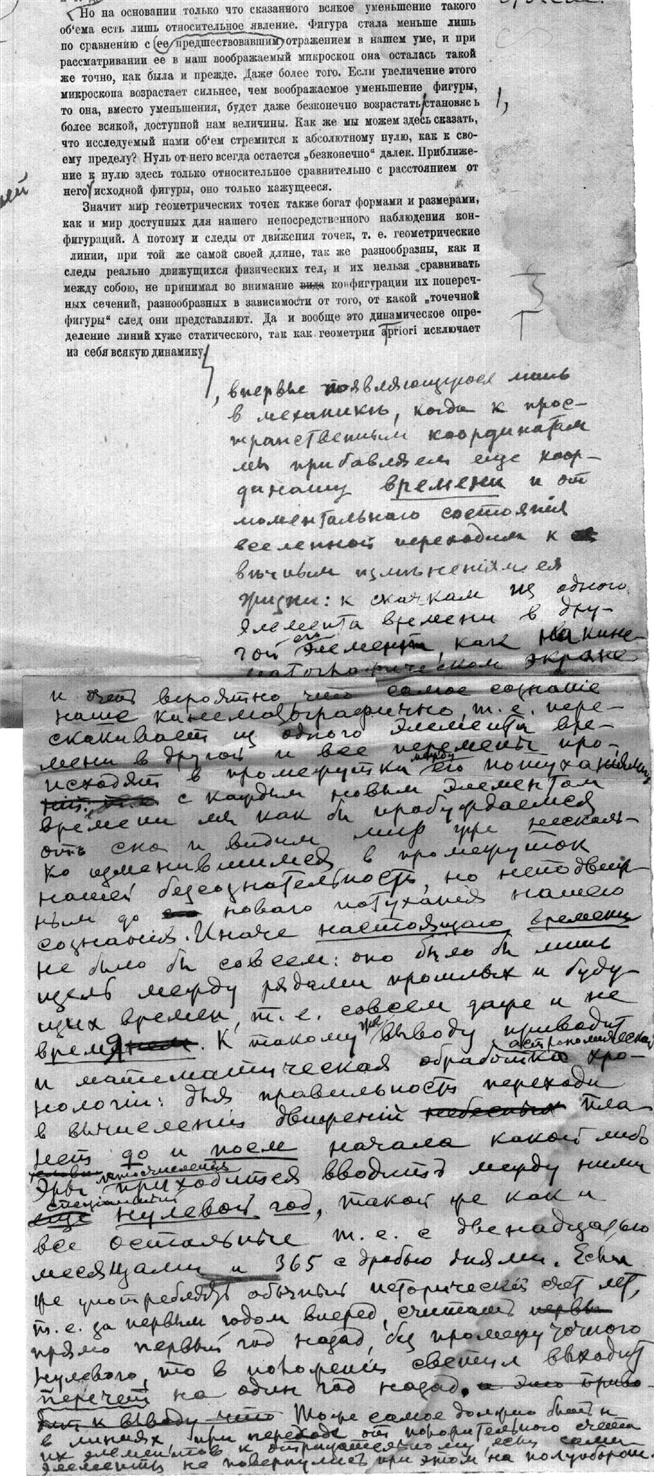 Но на основании только что сказанного всякое уменьшение такого
об'ема есть лишь относительное явление. Фигура стала меньше лишь
по сравнению с ее предшествовавшим отражением в нашем уме, и при
рассматривании ее в наш воображаемый микроскоп она осталась такой
же точно, как была и прежде. Даже более того. Если увеличение этого
микроскопа возрастает сильнее, чем воображаемое уменьшение фигуры,
то она, вместо уменьшения, будет даже безконечно возрастать, становясь
более всякой, доступной нам величины. Как же мы можем здесь сказать,
что исследуемый нами об'ем стремится к абсолютному нулю, как к сво-
ему пределу? Нуль от него всегда остается „безконечно" далек. Приближе-
ние к нулю здесь только относительное сравнительно с расстоянием от
него исходной фигуры, оно только кажущееся.
Значит мир геометрических точек также богат формами и размерами,
как и мир доступных для нашего непосредственного наблюдения кон-
фигураций. А потому и следы от движения точек, т. е. геометрические
линии, при той же самой своей длине, так же разнообразны, как и
следы реально движущихся физических тел, и их нельзя сравнивать
между собою, не принимая во внимание вида конфигурации их попереч-
ных сечений, разнообразных в зависимости от того, от какой „точечной
фигуры" след они представляют. Да и вообще это динамическое опре-
деление линий хуже статического, так как геометрия apriori исключает
из себя всякую динамику,
впервые появляющуюся лишь
в механике, когда к прос-
транственным координатам
мы прибавляем еще коор-
динату времени и от
моментального состояния
вселенной переходим к
вѣчным измѣнениям ея
жизни: к скачкам из одного
элемента времени в дру-
гой его элемент, как на кине-
матографическом экране
и вероятно что самое сознание
наше кинематографично, т. е. пере-
скакивает из одного элемента вре-
мени в другой и все перемены про-
исходят в промежутки между его потуханиями
с каждым новым элементом
времени мы как бы пробуждаемся
от сна и видим мир уже несколь-
ко изменившимся в промежуток
нашей безсознательности, но неподвиж-
ным до новаго потухания нашего
сознания. Иначе настоящаго времени
не было бы совсем: оно было бы лишь
щель между рядами прошлых и буду-
щих времен, т. е. совсем даже и не
время. К такому же выводу приводит
и математическая обработка астрономической хро-
нологии: для правильности перехода
в вычислении движений небесных пла-
нет до и после начала какой либо
эры летосчисления приходится вводить между ними
специальный
еще нулевой год, такой же как и
все остальные т. е. с двенадцатью
месяцами и 365 с дробью днями. Если
же употреблять обычный исторический счет лет,
т. е. за первым годом вперед, считать первы
прямо первый год назад, без промежуточного
нулевого, то в положении светил выходит
перечет на один год назад, а это приво-
дит к выводу что Тоже самое должно быть и
в линиях при переходе от положительного счета
их элементов к отрицательному, если сами
элементы не повернулись при этом на полуоборот.